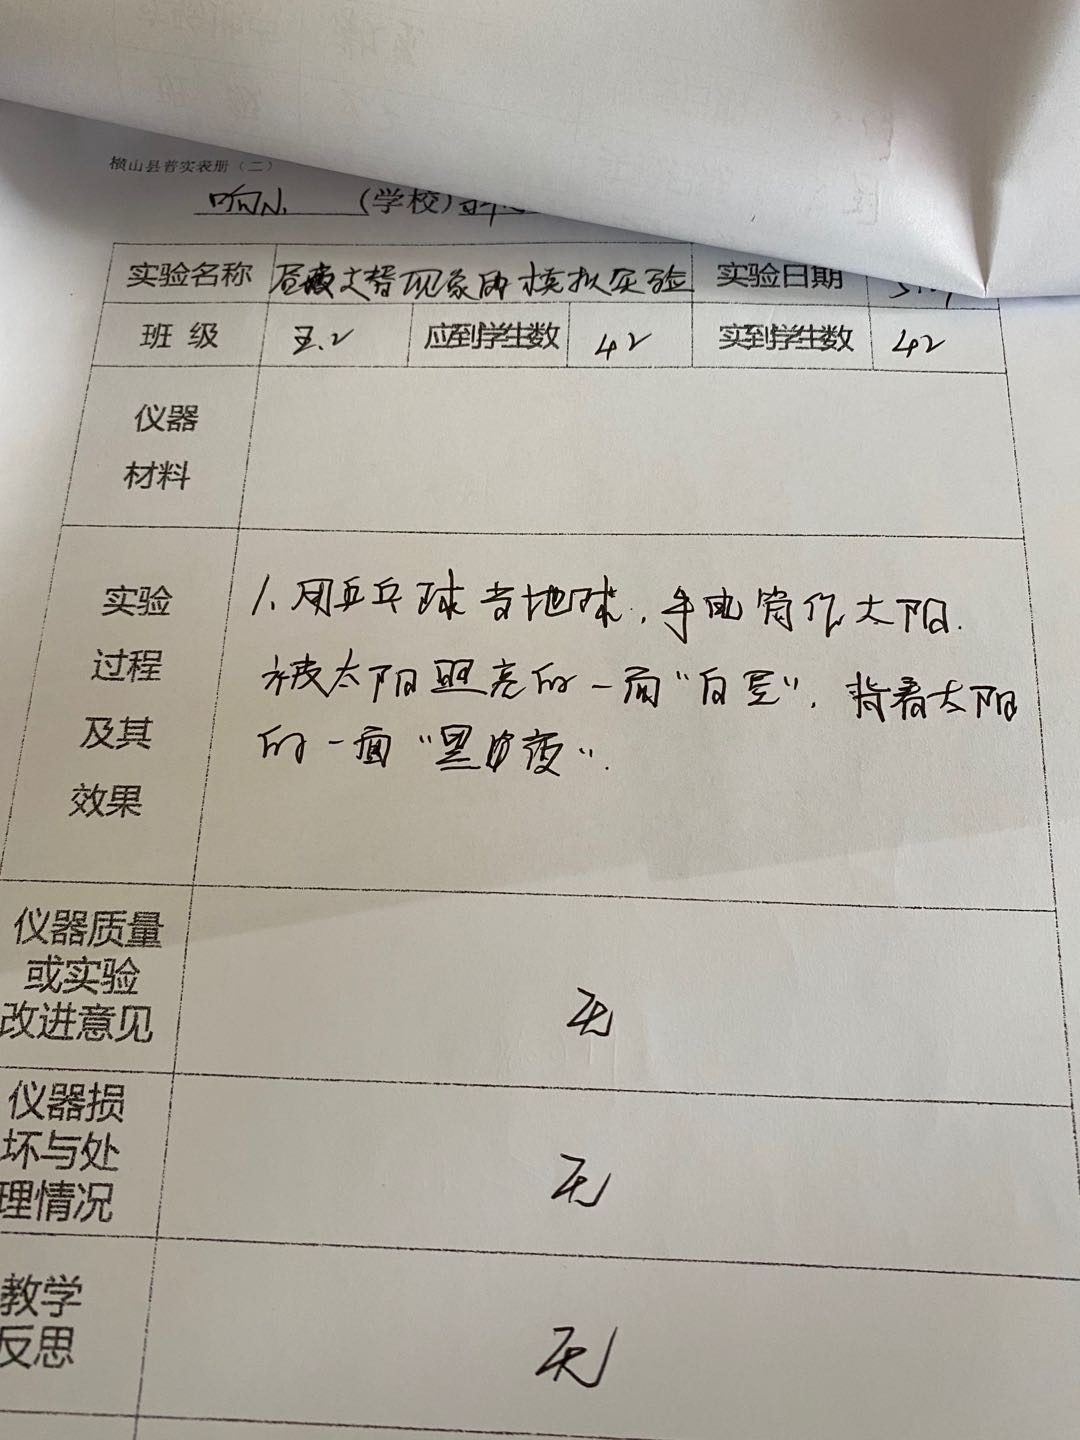 横山县普实表册（二）
响小 （学校）
实验名称 昼夜交替现象的模拟实验 实验日期
班 级 五.2 应到学生数 42 实到学生数 42
仪器
材料
实验
过程
及其
效果
1、用乒乓球当地球，手电筒作太阳.
被太阳照亮的一面“白昼”，背着太阳
的一面“黑夜”.
仪器质量
或实验
改进意见
无
仪器损
坏与处
理情况
无
教学
反思
无